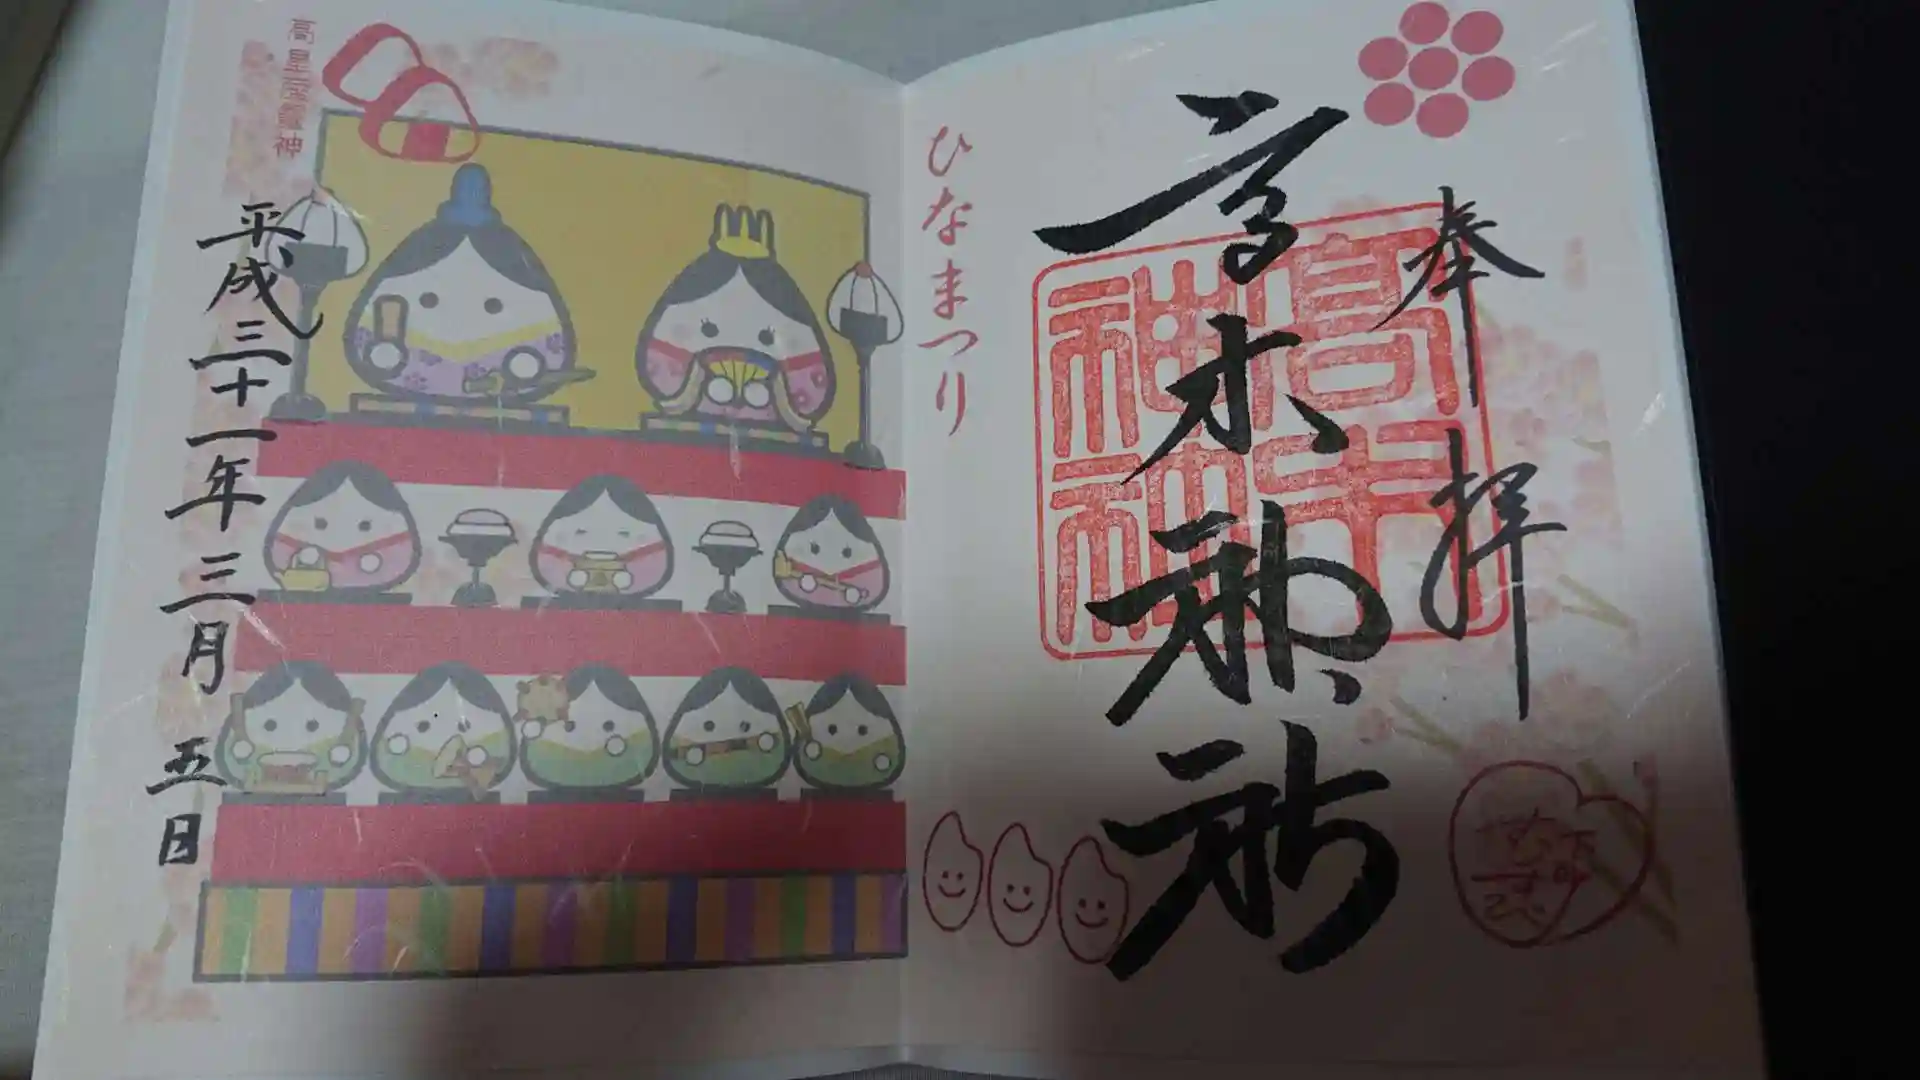 奉拝
高木神社
高木神社
ひなまつり
高皇産霊神
平成三十一年三月五日